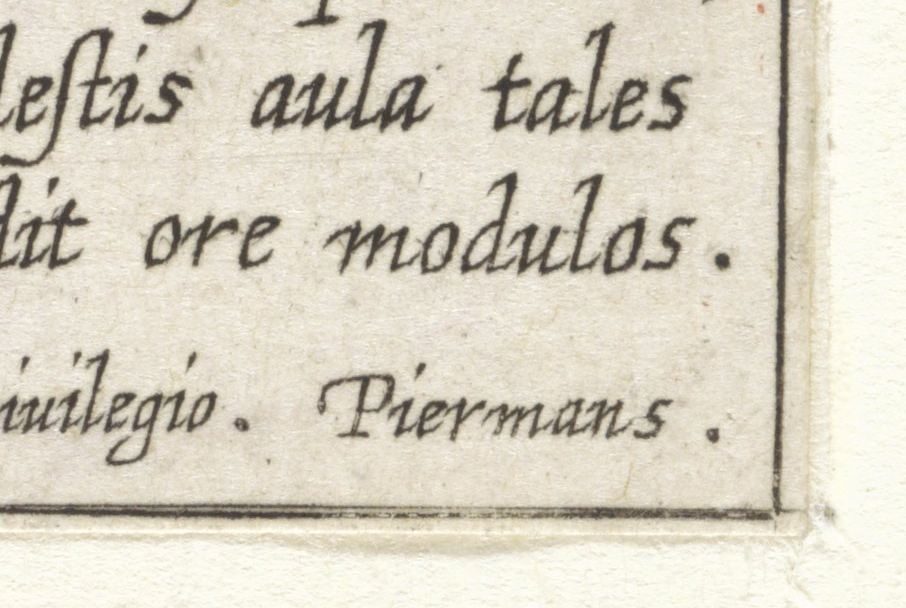 leſtis aula tales
dit ore modulos.
iuilegio. Piermans.